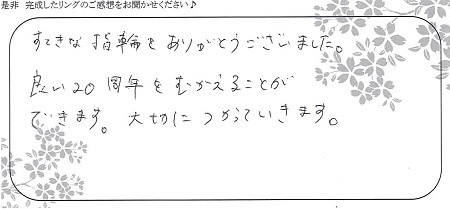 是非 完成したリングのご感想をお聞かせください♪
すてきな指輪をありがとうございました。
良い20周年をむかえることが
できます。大切につかっていきます。